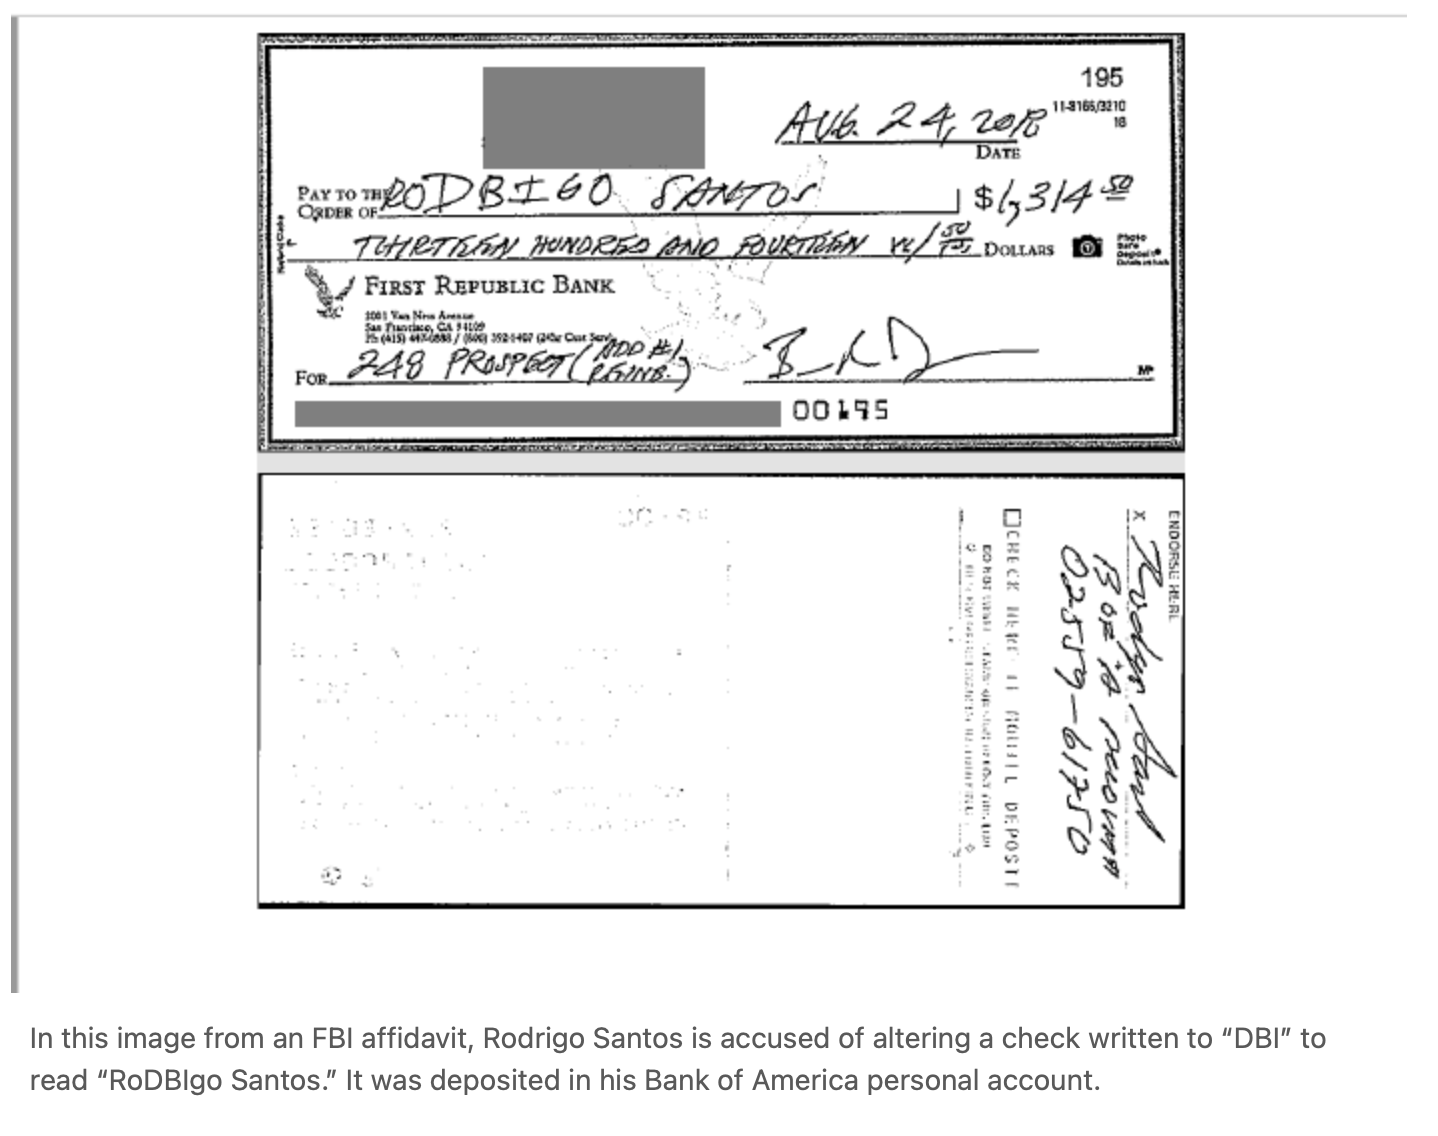 195
11-8166/3210
18
AUG. 24, 2018
DATE
PAY TO THE
ORDER OF
RODBIGO SANTOS
$1,314 50
THIRTEEN HUNDRED AND FOURTEEN w/ 50
DOLLARS
Photo
Safe
Deposit
FIRST REPUBLIC BANK
2001 Van Ness Avenue
San Francisco, CA 94109
FOR 248 PROSPECT (ADD #1, REIMB.)
MP
00195
ENDORSE HERE
X Rodrigo Sant
B OF A
02559-61750
CHECK HERE IF MOBILE DEPOSIT
In this image from an FBI affidavit, Rodrigo Santos is accused of altering a check written to “DBI” to
read “RoDBIgo Santos.” It was deposited in his Bank of America personal account.